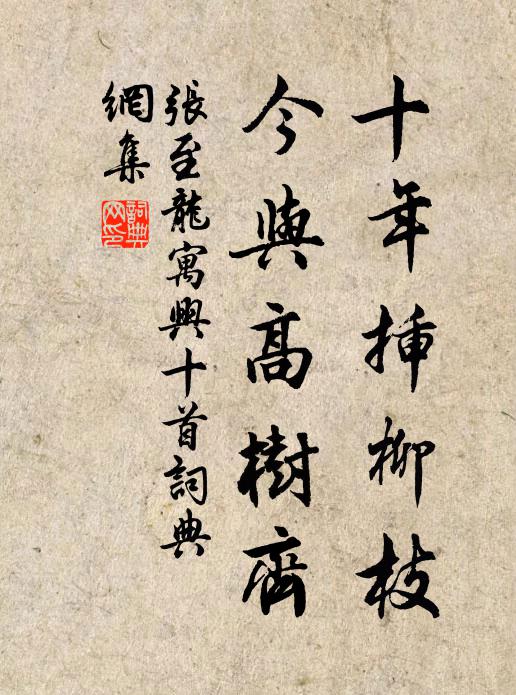 十年揷柳枝
今與高樹齊
張至龍寓興十首詞典
網集
詞典網印